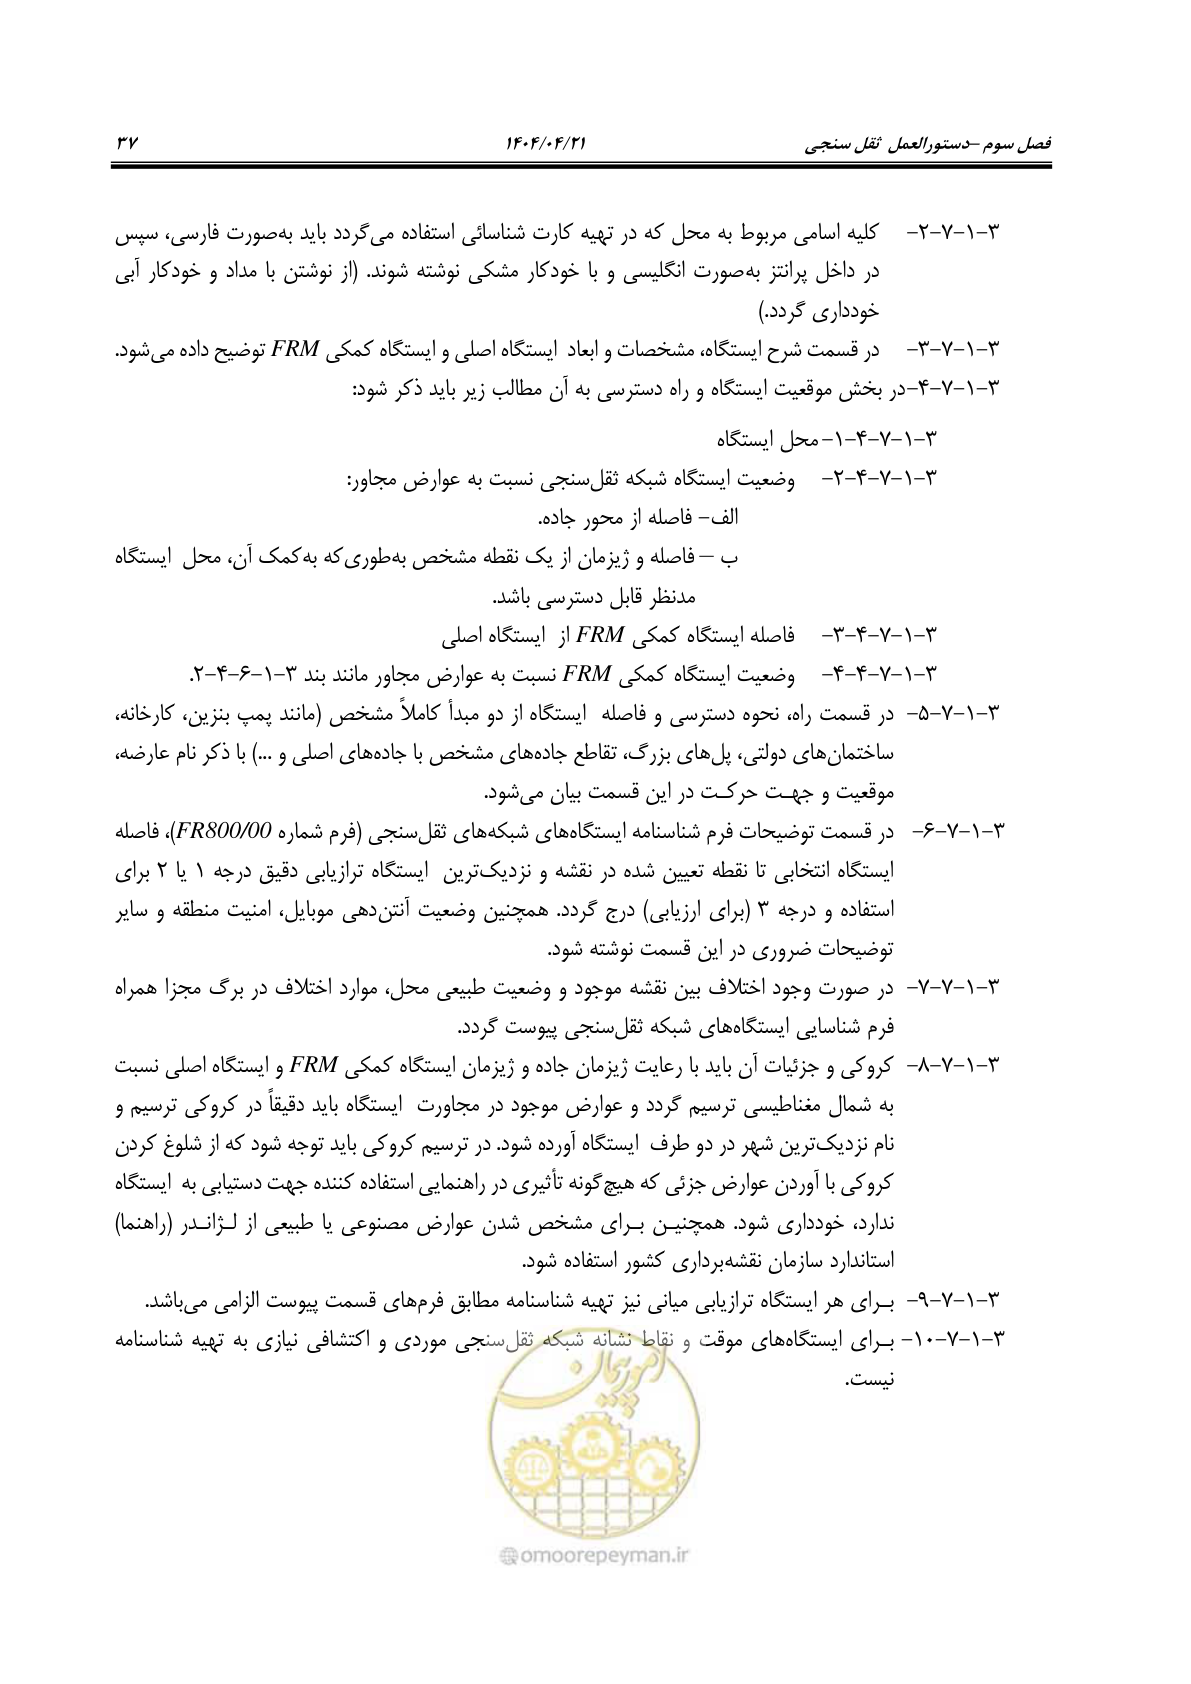 فصل سوم –دستورالعمل ثقل سنجی ۱۴۰۴/۰۴/۲۱ ۳۷
۳-۱-۷-۲- کلیه اسامی مربوط به محل که در تهیه کارت شناسائی استفاده می‌گردد باید به‌صورت فارسی، سپس
در داخل پرانتز به‌صورت انگلیسی و با خودکار مشکی نوشته شوند. (از نوشتن با مداد و خودکار آبی
خودداری گردد.)
۳-۱-۷-۳- در قسمت شرح ایستگاه، مشخصات و ابعاد ایستگاه اصلی و ایستگاه کمکی FRM توضیح داده می‌شود.
۳-۱-۷-۴-در بخش موقعیت ایستگاه و راه دسترسی به آن مطالب زیر باید ذکر شود:
۳-۱-۷-۴-۱- محل ایستگاه
۳-۱-۷-۴-۲- وضعیت ایستگاه شبکه ثقل‌سنجی نسبت به عوارض مجاور:
الف- فاصله از محور جاده.
ب – فاصله و ژیزمان از یک نقطه مشخص به‌طوری‌که به‌کمک آن، محل ایستگاه
مدنظر قابل دسترسی باشد.
۳-۱-۷-۴-۳- فاصله ایستگاه کمکی FRM از ایستگاه اصلی
۳-۱-۷-۴-۴- وضعیت ایستگاه کمکی FRM نسبت به عوارض مجاور مانند بند ۳-۱-۶-۴-۲.
۳-۱-۷-۵- در قسمت راه، نحوه دسترسی و فاصله ایستگاه از دو مبدأ کاملاً مشخص (مانند پمپ بنزین، کارخانه،
ساختمان‌های دولتی، پل‌های بزرگ، تقاطع جاده‌های مشخص با جاده‌های اصلی و ...) با ذکر نام عارضه،
موقعیت و جهـت حرکـت در این قسمت بیان می‌شود.
۳-۱-۷-۶- در قسمت توضیحات فرم شناسنامه ایستگاه‌های شبکه‌های ثقل‌سنجی (فرم شماره FR800/00)، فاصله
ایستگاه انتخابی تا نقطه تعیین شده در نقشه و نزدیک‌ترین ایستگاه ترازیابی دقیق درجه ۱ یا ۲ برای
استفاده و درجه ۳ (برای ارزیابی) درج گردد. همچنین وضعیت آنتن‌دهی موبایل، امنیت منطقه و سایر
توضیحات ضروری در این قسمت نوشته شود.
۳-۱-۷-۷- در صورت وجود اختلاف بین نقشه موجود و وضعیت طبیعی محل، موارد اختلاف در برگ مجزا همراه
فرم شناسایی ایستگاه‌های شبکه ثقل‌سنجی پیوست گردد.
۳-۱-۷-۸- کروکی و جزئیات آن باید با رعایت ژیزمان جاده و ژیزمان ایستگاه کمکی FRM و ایستگاه اصلی نسبت
به شمال مغناطیسی ترسیم گردد و عوارض موجود در مجاورت ایستگاه باید دقیقاً در کروکی ترسیم و
نام نزدیک‌ترین شهر در دو طرف ایستگاه آورده شود. در ترسیم کروکی باید توجه شود که از شلوغ کردن
کروکی با آوردن عوارض جزئی که هیچ‌گونه تأثیری در راهنمایی استفاده کننده جهت دستیابی به ایستگاه
ندارد، خودداری شود. همچنیـن بـرای مشخص شدن عوارض مصنوعی یا طبیعی از لـژانـدر (راهنما)
استاندارد سازمان نقشه‌برداری کشور استفاده شود.
۳-۱-۷-۹- بـرای هر ایستگاه ترازیابی میانی نیز تهیه شناسنامه مطابق فرم‌های قسمت پیوست الزامی می‌باشد.
۳-۱-۷-۱۰- بـرای ایستگاه‌های موقت و نقاط نشانه شبکه ثقل‌سنجی موردی و اکتشافی نیازی به تهیه شناسنامه
نیست.
امور پیمان
@omoorepeyman.ir